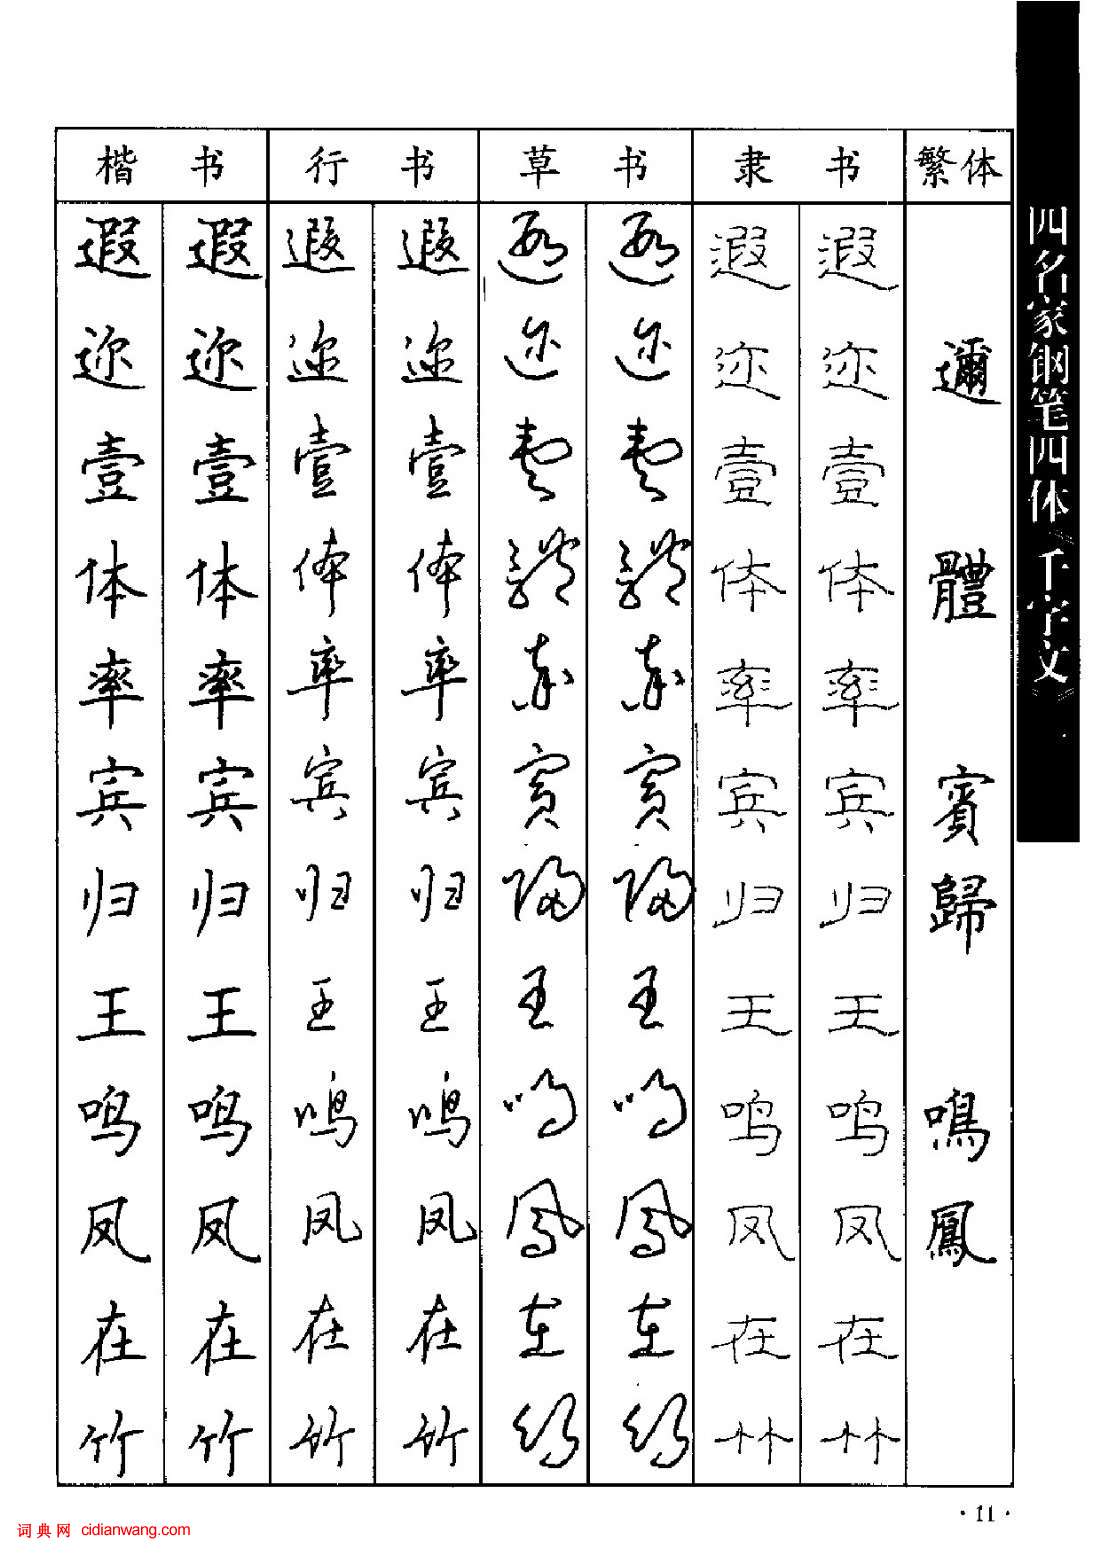 四名家钢笔四体《千字文》
楷 书 行 书 草 书 隶 书 繁体
遐 遐 遐 遐 遐 遐 遐 遐
迩 迩 迩 迩 迩 迩 迩 迩 邇
壹 壹 壹 壹 壹 壹 壹 壹
体 体 体 体 體 體 体 体 體
率 率 率 率 率 率 率 率
宾 宾 宾 宾 賓 賓 宾 宾 賓
归 归 归 归 歸 歸 归 归 歸
王 王 王 王 王 王 王 王
鸣 鸣 鸣 鸣 鸣 鸣 鸣 鸣 鳴
凤 凤 凤 凤 鳳 鳳 凤 凤 鳳
在 在 在 在 在 在 在 在
竹 竹 竹 竹 竹 竹 竹 竹
·11·
词典网 cidianwang.com